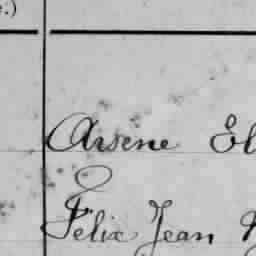 .)
Arsene El
Felix Jean